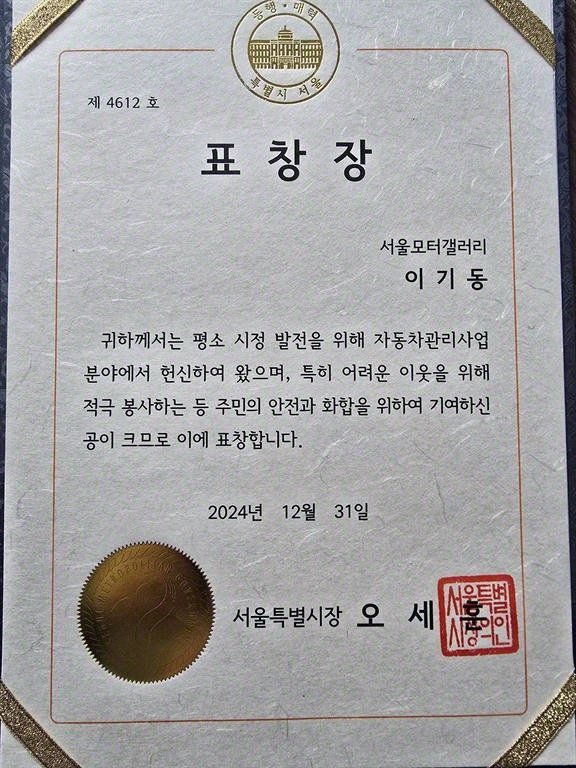 동행·매력
특별시 서울
제 4612 호
표 창 장
서울모터갤러리
이 기 동
귀하께서는 평소 시정 발전을 위해 자동차관리사업
분야에서 헌신하여 왔으며, 특히 어려운 이웃을 위해
적극 봉사하는 등 주민의 안전과 화합을 위하여 기여하신
공이 크므로 이에 표창합니다.
2024년 12월 31일
서울특별시장 오 세 훈
서울특별
시장의인